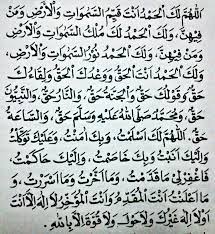 اَللّٰهُمَّ لَكَ الْحَمْدُ أَنْتَ قَيِّمُ السَّمٰوَاتِ وَالْأَرْضِ وَمَنْ
فِيْهِنَّ، وَلَكَ الْحَمْدُ أَنْتَ نُوْرُ السَّمٰوَاتِ وَالْأَرْضِ
وَمَنْ فِيْهِنَّ، وَلَكَ الْحَمْدُ لَكَ مُلْكُ السَّمٰوَاتِ وَالْأَرْضِ،
وَلَكَ الْحَمْدُ أَنْتَ الْحَقُّ، وَوَعْدُكَ الْحَقُّ وَلِقَاؤُكَ
حَقٌّ، وَقَوْلُكَ حَقٌّ، وَالْجَنَّةُ حَقٌّ، وَالنَّارُ حَقٌّ، وَالنَّبِيُّوْنَ
حَقٌّ، وَمُحَمَّدٌ صَلَّى اللهُ عَلَيْهِ وَسَلَّمَ حَقٌّ، وَالسَّاعَةُ
حَقٌّ. اَللّٰهُمَّ لَكَ أَسْلَمْتُ، وَبِكَ آمَنْتُ، وَعَلَيْكَ تَوَكَّلْتُ
وَإِلَيْكَ أَنَبْتُ وَبِكَ خَاصَمْتُ، وَإِلَيْكَ حَاكَمْتُ،
فَاغْفِرْلِيْ مَاقَدَّمْتُ، وَمَا أَخَّرْتُ وَمَا أَسْرَرْتُ، وَ
مَا أَعْلَنْتُ أَنْتَ الْمُقَدِّمُ وَأَنْتَ الْمُؤَخِّرُ لَا إِلٰهَ إِلَّا أَنْتَ
أَوْ لَا إِلٰهَ غَيْرُكَ وَلَا حَوْلَ وَلَا قُوَّةَ إِلَّا بِاللهِ.